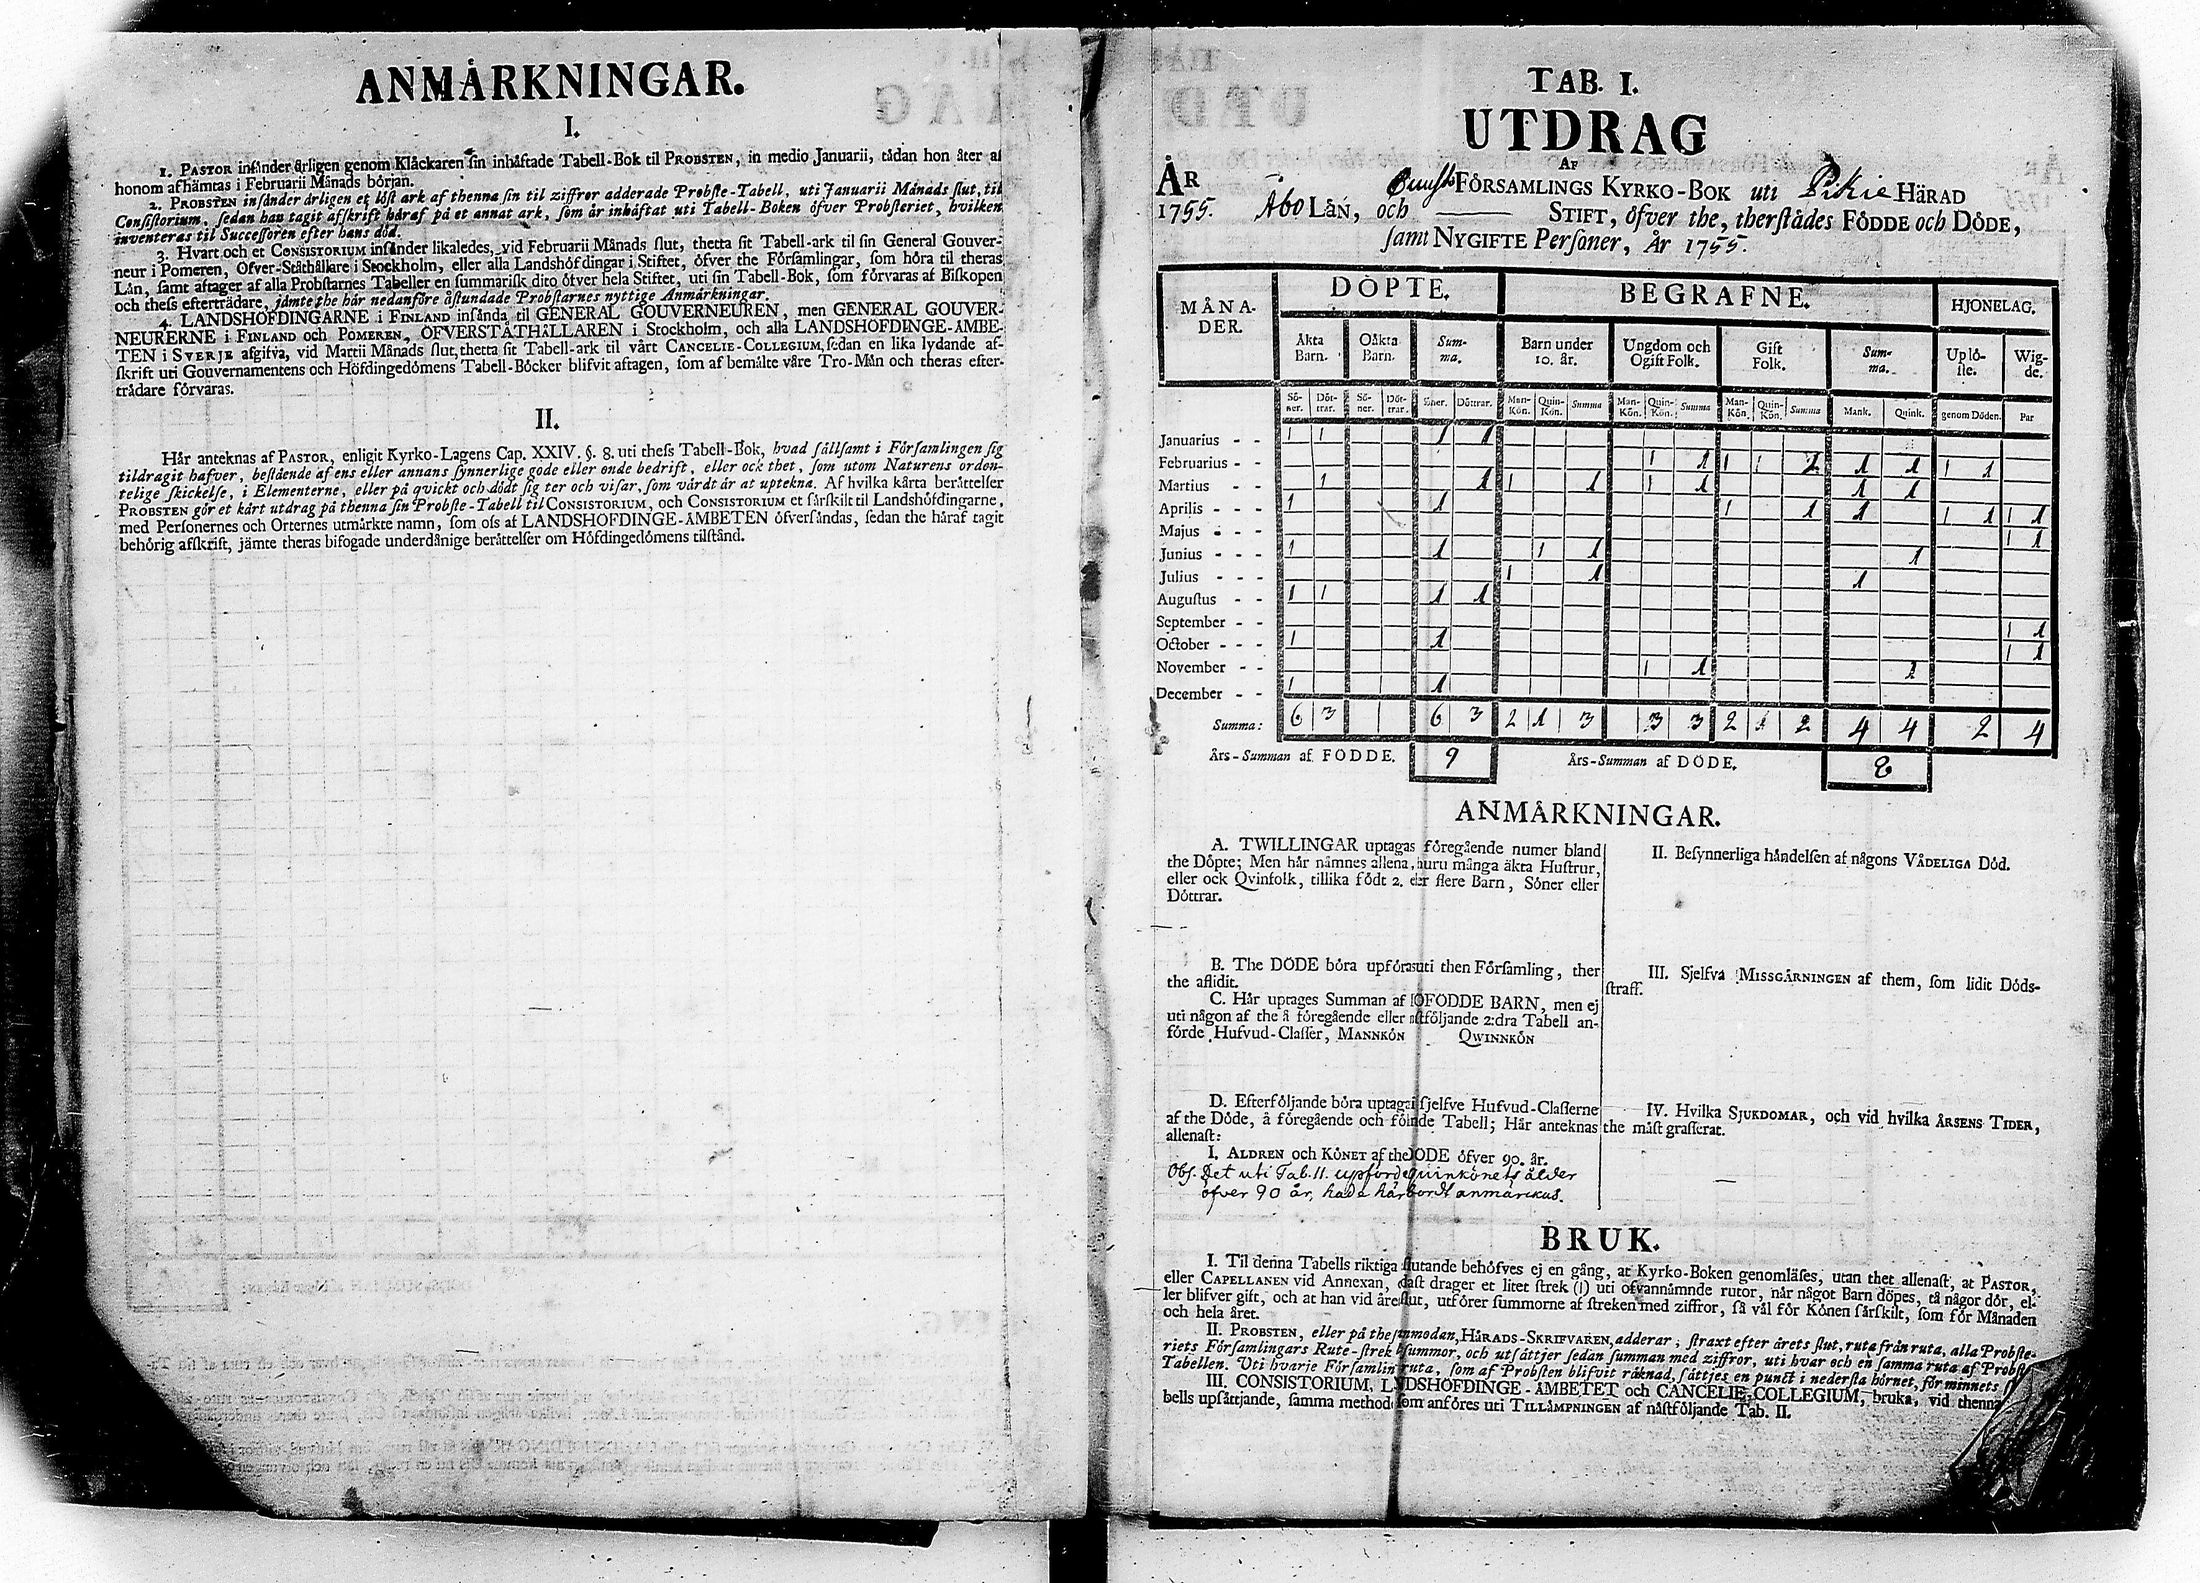 ANMÅRKNINGAR.
I.
1. PASTOR insånder årligen genom Klåckaren sin inhåftade Tabell-Bok til PROBSTEN, in medio Januarii, tådan hon åter af
honom afhåmtas i Februarii Månads början.
2. PROBSTEN insånder årligen et löst ark af thenna sin til ziffror adderade Probste-Tabell, uti Januarii Månads slut, til
Consistorium, sedan han tagit afskrift håraf på et annat ark, som år inhåftat uti Tabell-Boken öfver Probsteriet, hvilken
inventeras til Successoren efter hans död.
3. Hvart och et CONSISTORIUM insånder likaledes, vid Februarii Månads slut, thetta sit Tabell-ark til sin General Gouver-
neur i Pomeren, Öfver-Ståthållare i Stockholm, eller alla Landshöfdingar i Stiftet, öfver the Församlingar, som höra til theras
Lån, samt aftager af alla Probstarnes Tabeller en summarisk dito öfver hela Stiftet, uti sin Tabell-Bok, som förvaras af Biskopen
och thess efterträdare, jämte the här nedanföre åstundade Probstarnes nyttige Anmårkningar.
4. LANDSHÖFDINGARNE i FINLAND insånda til GENERAL GOUVERNEUREN, men GENERAL GOUVER-
NEURERNE i FINLAND och POMEREN, ÖFVERSTÅTHÅLLAREN i Stockholm, och alla LANDSHÖFDINGE-ÅMBE-
TEN i SVERJE afgifva, vid Martii Månads slut, thetta sit Tabell-ark til vårt CANCELIE-COLLEGIUM, sedan en lika lydande af-
skrift uti Gouvernamentens och Höfdingedömens Tabell-Böcker blifvit aftagen, som af bemålte våre Tro-Mån och theras efter-
trådare förvaras.
II.
Hår anteknas af PASTOR, enligit Kyrko-Lagens Cap. XXIV. §. 8. uti thess Tabell-Bok, hvad sållsamt i Församlingen sig
tildragit hafver, bestående af ens eller annans synnerlige gode eller onde bedrift, eller ock thet, som utom Naturens orden-
telige skickelse, i Elementerne, eller på qvickt och dödt sig ter och visar, som vårdt år at uptekna. Af hvilka kårta beråttelser
PROBSTEN gör et kårt utdrag på thenna sin Probste-Tabell til CONSISTORIUM, och CONSISTORIUM et sårskilt til Landshöfdingarne,
med Personernes och Orternes utmårkte namn, som oss af LANDSHÖFDINGE-ÅMBETEN öfversåndas, sedan the håraf tagit
behörig afskrift, jåmte theras bifogade underdånige beråttelser om Höfdingedömens tilstånd.
TAB. I.
UTDRAG
AF
ÅR FÖRSAMLINGS KYRKO-BOK uti Pikie HÄRAD
1755. Åbo LÅN, och STIFT, öfver the, therstådes FÖDDE och DÖDE,
samt NYGIFTE Personer, År 1755.
MÅNA-
DER. DÖPTE. BEGRAFNE. HJONELAG.
Äkta
Barn. Oåkta
Barn. Sum-
ma. Barn under
10. år. Ungdom och
Ogift Folk. Gift
Folk. Sum-
ma. Uplö-
ste. Wig-
de.
Sö-
ner. Döt-
trar. Sö-
ner. Döt-
trar. Söner. Döttrar. Man-
Kön. Quin-
Kön. Summa Man-
Kön. Quin-
Kön. Summa Man-
Kön. Quin-
Kön. Summa Mank. Quink. genom Döden. Par
Januarius - - 1 1 1 1
Februarius - - 1 1 1 1 2 1 1 1 1
Martius - - 1 1 1 1 1 1 1 1
Aprilis - - - 1 1 1 1 1 1 1 1 1
Majus - - - 1 1
Junius - - - 1 1 1 1 1
Julius - - - 1 1 1
Augustus - - 1 1 1 1
September - - 1 1
October - - - 1 1 1 1
November - - 1 1 1
December - - 1 1
Summa: 6 3 6 3 2 1 3 3 3 2 1 2 4 4 2 4
Års-Summan af FÖDDE. 9 Års-Summan af DÖDE. 8
ANMÅRKNINGAR.
A. TWILLINGAR uptagas föregående numer bland
the Döpte; Men hår nåmnes allena, huru många äkta Hustrur,
eller ock Qvinfolk, tillika födt 2. eller flere Barn, Söner eller
Döttrar.
B. The DÖDE böra upföras uti then Församling, ther
the aflidit.
C. Hår uptages Summan af OFÖDDE BARN, men ej
uti någon af the å föregående eller nåstföljande 2:dra Tabell an-
förde Hufvud-Classer, MANNKÖN QWINNKÖN
D. Efterföljande böra uptagas sjelfve Hufvud-Classerne
af the Döde, å föregående och följnde Tabell; Hår anteknas
allenast:
I. ALDREN och KÖNET af the DÖDE öfver 90. år.
Obs. Det uti Tab. II. upförde Quinkönets ålder
öfver 90 år, hade här bordt anmärckas.
II. Besynnerliga håndelsen af någons VÅDELIGA Död.
III. Sjelfva MISSGÅRNINGEN af them, som lidit Döds-
straff.
IV. Hvilka SJUKDOMAR, och vid hvilka ÅRSENS TIDER,
the måst grasserat.
BRUK.
I. Til denna Tabells riktiga slutande behöfves ej en gång, at Kyrko-Boken genomläses, utan thet allenast, at PASTOR,
eller CAPELLANEN vid Annexan, dast drager et litet strek (|) uti ofvannåmnde rutor, når något Barn döpes, tå någor dör, el-
ler blifver gift, och at han vid åres slut, utförer summorne af streken med ziffror, så vål för Könen sårskilt, som för Månaden
och hela året.
II. PROBSTEN, eller på the inmodan, HÅRADS-SKRIFVAREN, adderar, straxt efter årets slut, ruta från ruta, alla Probste-
riets Församlingars Rute-strek summor, och utsåttjer sedan summan med ziffror, uti hvar och en samma ruta af Probste-
Tabellen. Uti hvarje Församlin ruta, som af Probsten blifvit råknad, såttjes en punct i nedersta hörnet, för minnets
III. CONSISTORIUM, LANDSHÖFDINGE-ÅMBETET och CANCELIE-COLLEGIUM, bruka, vid thenna
bells upsåttjande, samma method som anföres uti TILLÅMPNINGEN af nåstföljande Tab. II.